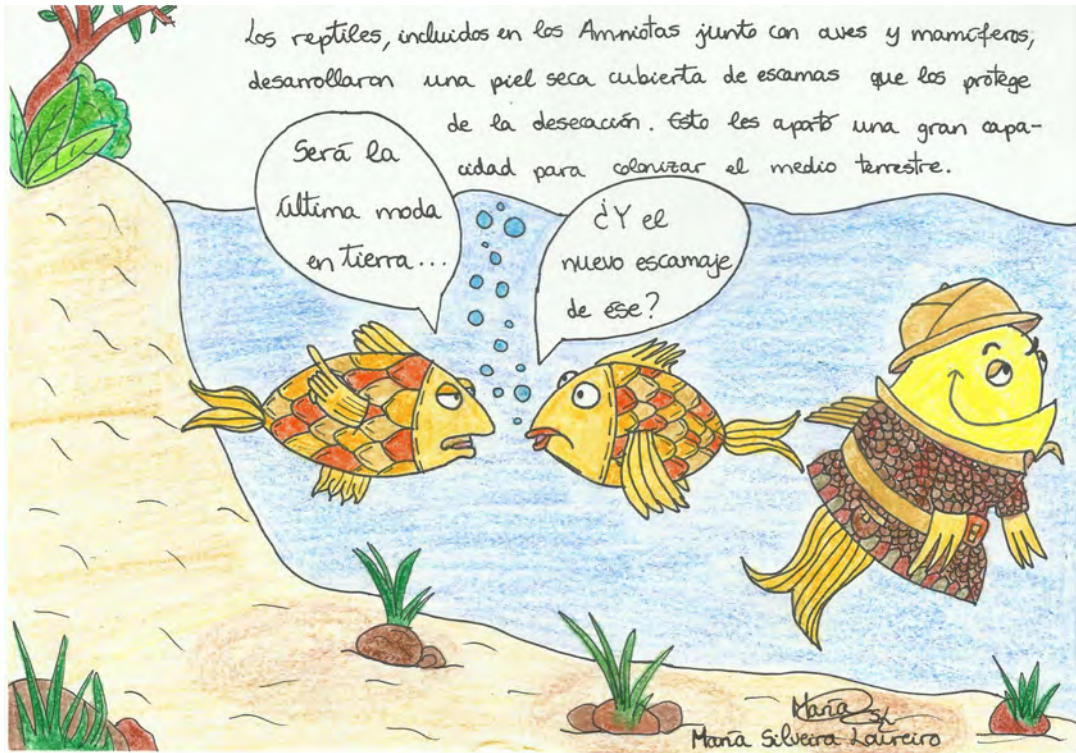 Los reptiles, incluidos en los Amniotas junto con aves y mamíferos,
desarrollaron una piel seca cubierta de escamas que los protege
de la desecación. Esto les aportó una gran capa-
cidad para colonizar el medio terrestre.
Será la
última moda
en tierra...
¿Y el
nuevo escamaje
de ese?
María SL
María Silveira Loureiro